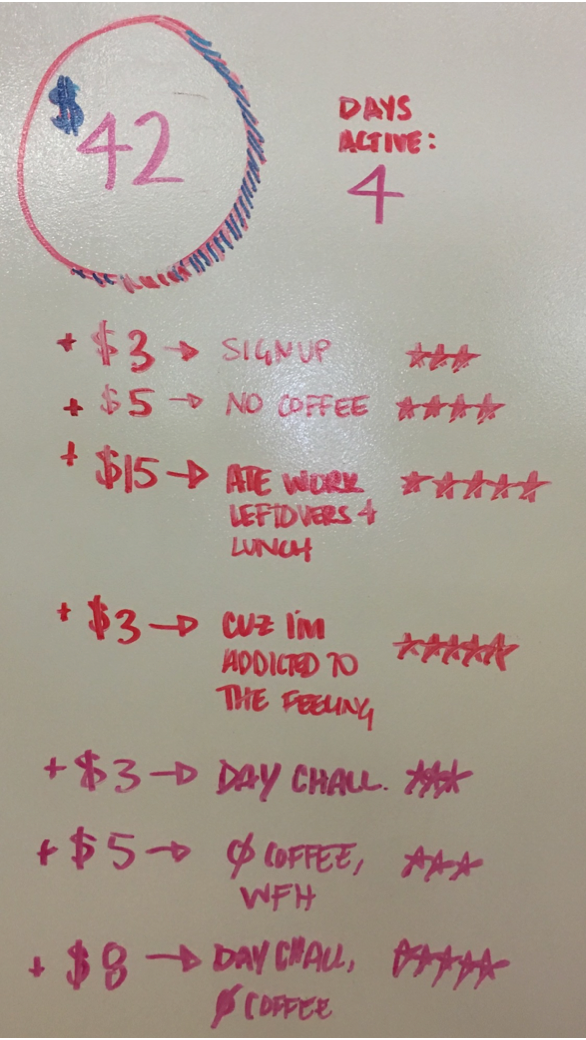 $42
DAYS
ACTIVE:
4
+ $3 → SIGNUP ★★★
+ $5 → NO COFFEE ★★★★
+ $15 → ATE WORK ★★★★★
LEFTOVERS 4
LUNCH
+ $3 → CUZ I'M
ADDICTED TO ★★★★★
THE FEELING
+ $3 → DAY CHALL. ★★★
+ $5 → Ø COFFEE, ★★★
WFH
+ $8 → DAY CHALL, ★★★★★
Ø COFFEE